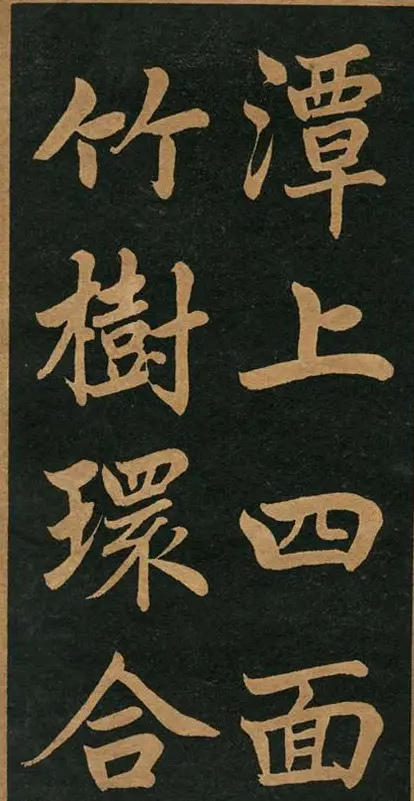 潭上四面
竹樹環合